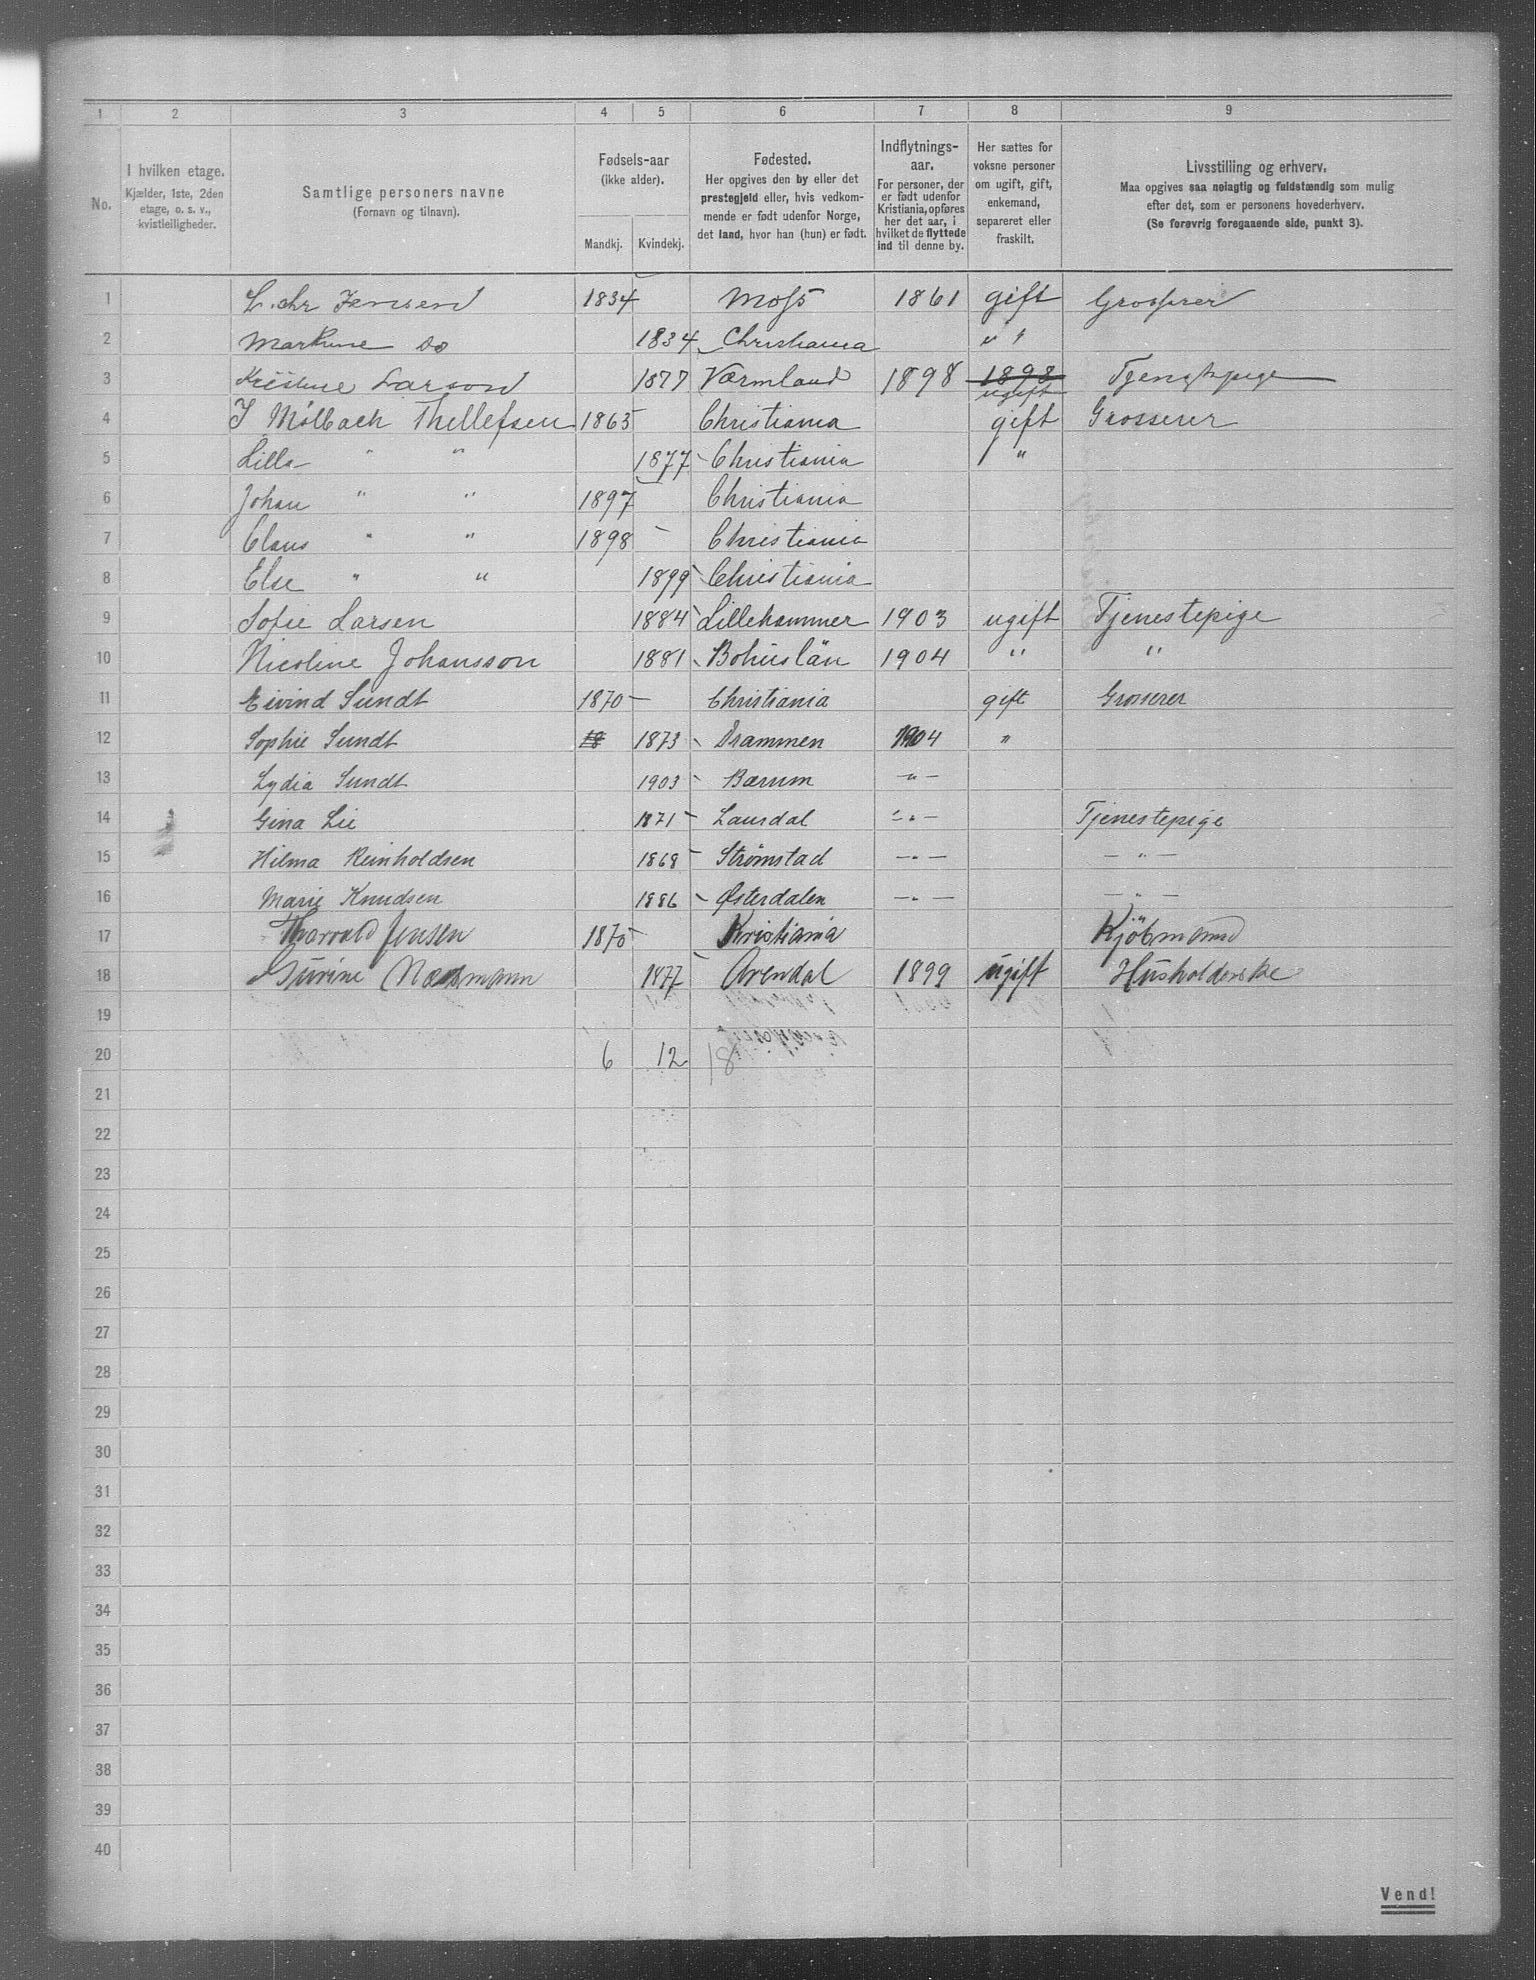 1 2 3 4 5 6 7 8 9
No. I hvilken etage. Kjælder, 1ste, 2den etage, o. s. v., kvistleiligheder. Samtlige personers navne (Fornavn og tilnavn). Fødsels-aar (ikke alder). Mandkj. Kvindekj. Fødested. Her opgives den by eller det prestegjeld eller, hvis vedkommende er født udenfor Norge, det land, hvor han (hun) er født. Indflytnings-aar. For personer, der er født udenfor Kristiania, opføres her det aar, i hvilket de flyttede ind til denne by. Her sættes for voksne personer om ugift, gift, enkemand, separeret eller fraskilt. Livsstilling og erhverv. Maa opgives saa nøiagtig og fuldstændig som mulig efter det, som er personens hovederhverv. (Se forøvrig foregaaende side, punkt 3).
1 L. Chr Jensen 1834 Moss 1861 gift Grosserer
2 Markine do 1834 Christiania " "
3 Kristine Larson 1877 Värmland 1898 1898 ugift Tjenstpige
4 J Mølbach Thellefsen 1865 Christiania gift Grosserer
5 Lilla " " 1877 Christiania "
6 Johan " " 1897 Christiania
7 Claus " " 1898 Christiania
8 Else " " 1899 Christiania
9 Sofie Larsen 1884 Lillehammer 1903 ugift Tjenestepige
10 Nicoline Johansson 1881 Bohuslän 1904 " "
11 Eivind Sundt 1870 Christiania gift Grosserer
12 Sophie Sundt 18 1873 Drammen 1904 "
13 Lydia Sundt 1903 Bærum — " —
14 Gina Lie 1871 Laurdal — " — Tjenestepige
15 Hilma Reinholdsen 1868 Strømstad — " — — " —
16 Marie Knudsen 1886 Østerdalen — " — — " —
17 Thorvald Jensen 1875 Kristiania Kjöbmand
18 Gurine 1877 Arendal 1899 ugift Husholderske
19
20 6 12 18
21
22
23
24
25
26
27
28
29
30
31
32
33
34
35
36
37
38
39
40
Vend!